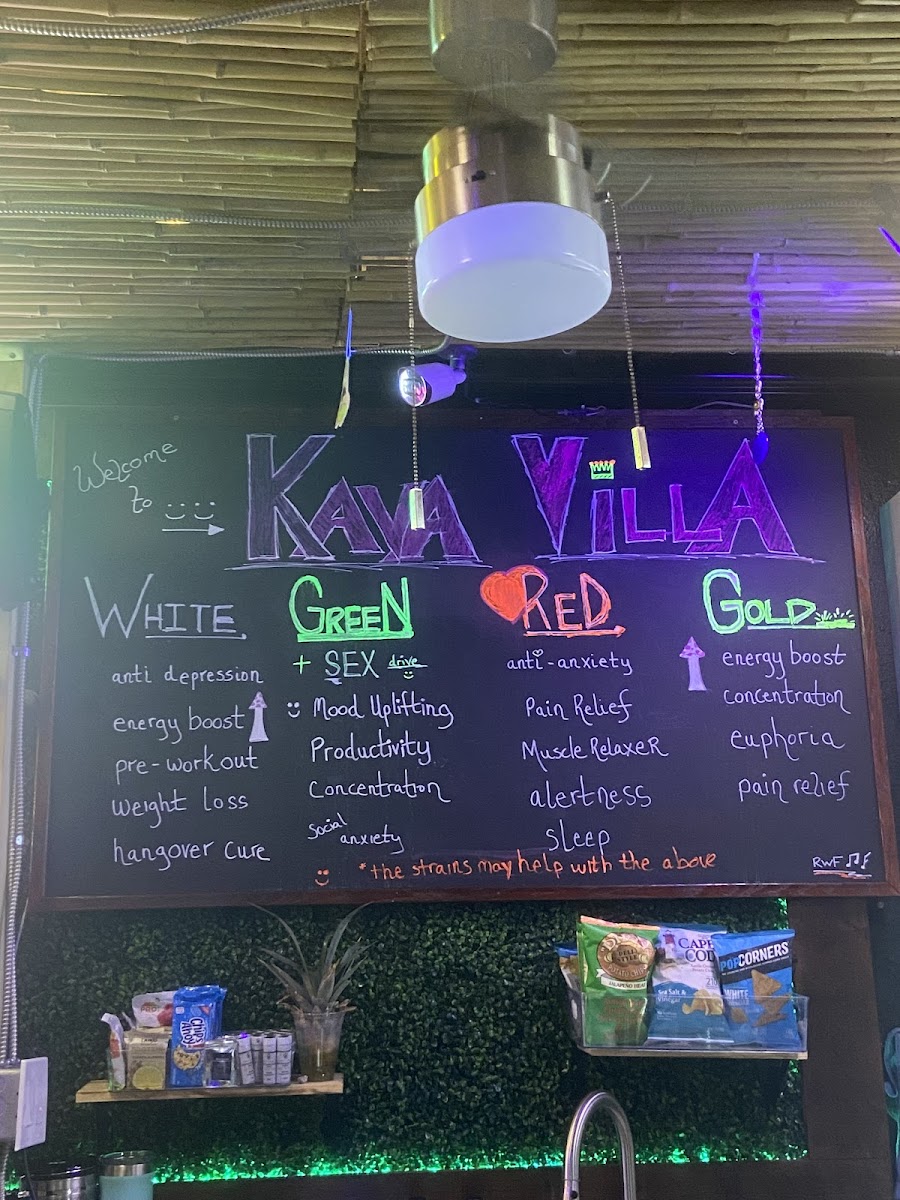 Welcome
to
KAVA VILLA
WHITE
anti depression
energy boost
pre-workout
weight loss
hangover cure
GREEN
+ SEX drive
Mood Uplifting
Productivity
Concentration
Social
anxiety
RED
anti-anxiety
Pain Relief
Muscle RelaxeR
alertness
sleep
GOLD
energy boost
concentration
euphoria
pain relief
*the strains may help with the above
RWF
CHIPS AHOY!
DELI STYLE
POTATO CHIPS
JALAPEÑO
CAPE COD
Sea Salt &
Vinegar
POPCORNERS
WHITE